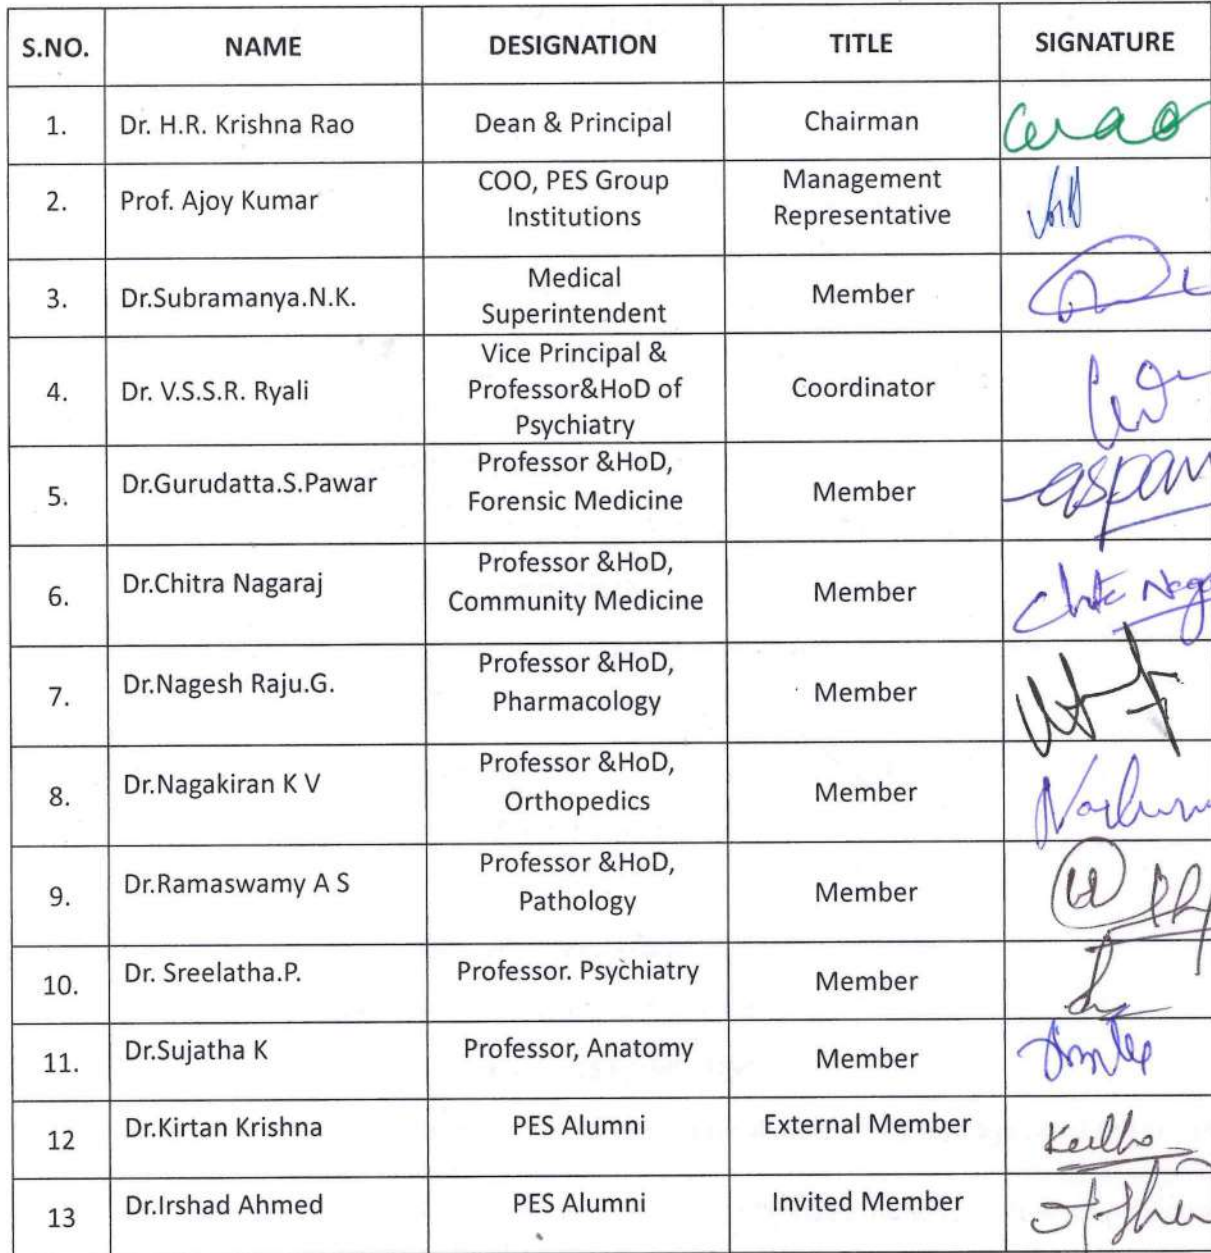 S.NO. NAME DESIGNATION TITLE SIGNATURE
1. Dr. H.R. Krishna Rao Dean & Principal Chairman
2. Prof. Ajoy Kumar COO, PES Group Institutions Management Representative
3. Dr.Subramanya.N.K. Medical Superintendent Member
4. Dr. V.S.S.R. Ryali Vice Principal & Professor&HoD of Psychiatry Coordinator
5. Dr.Gurudatta.S.Pawar Professor &HoD, Forensic Medicine Member
6. Dr.Chitra Nagaraj Professor &HoD, Community Medicine Member
7. Dr.Nagesh Raju.G. Professor &HoD, Pharmacology Member
8. Dr.Nagakiran K V Professor &HoD, Orthopedics Member
9. Dr.Ramaswamy A S Professor &HoD, Pathology Member
10. Dr. Sreelatha.P. Professor. Psychiatry Member
11. Dr.Sujatha K Professor, Anatomy Member
12 Dr.Kirtan Krishna PES Alumni External Member
13 Dr.Irshad Ahmed PES Alumni Invited Member